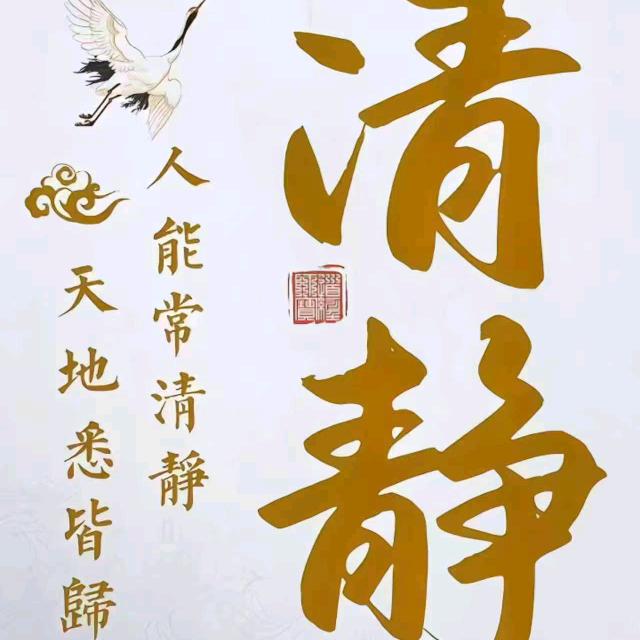 清静
人能常清靜
天地悉皆歸